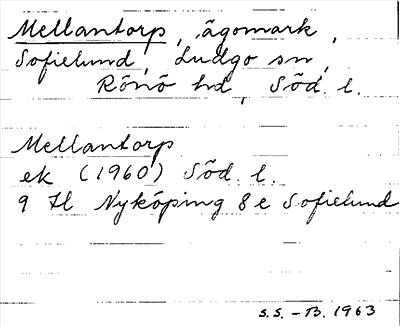 Mellantorp, ägomark,
Sofielund, Ludgo sn,
Rönö hd, Söd. l.
Mellantorp
ek (1960) Söd. l.
9 H Nyköping 8 e Sofielund
S.S. - B. 1963